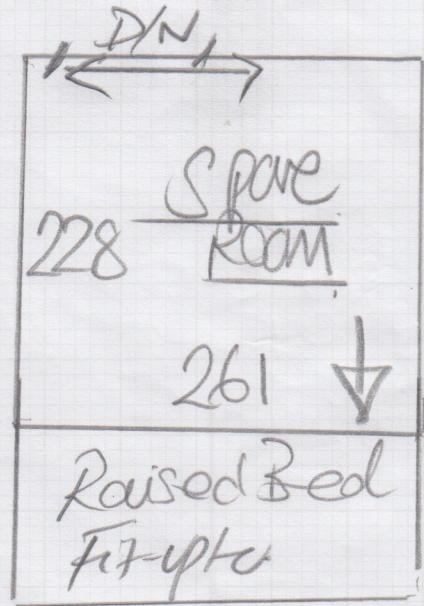 D/N
Spare
228 Room
261
Raised Bed
Fit-up to